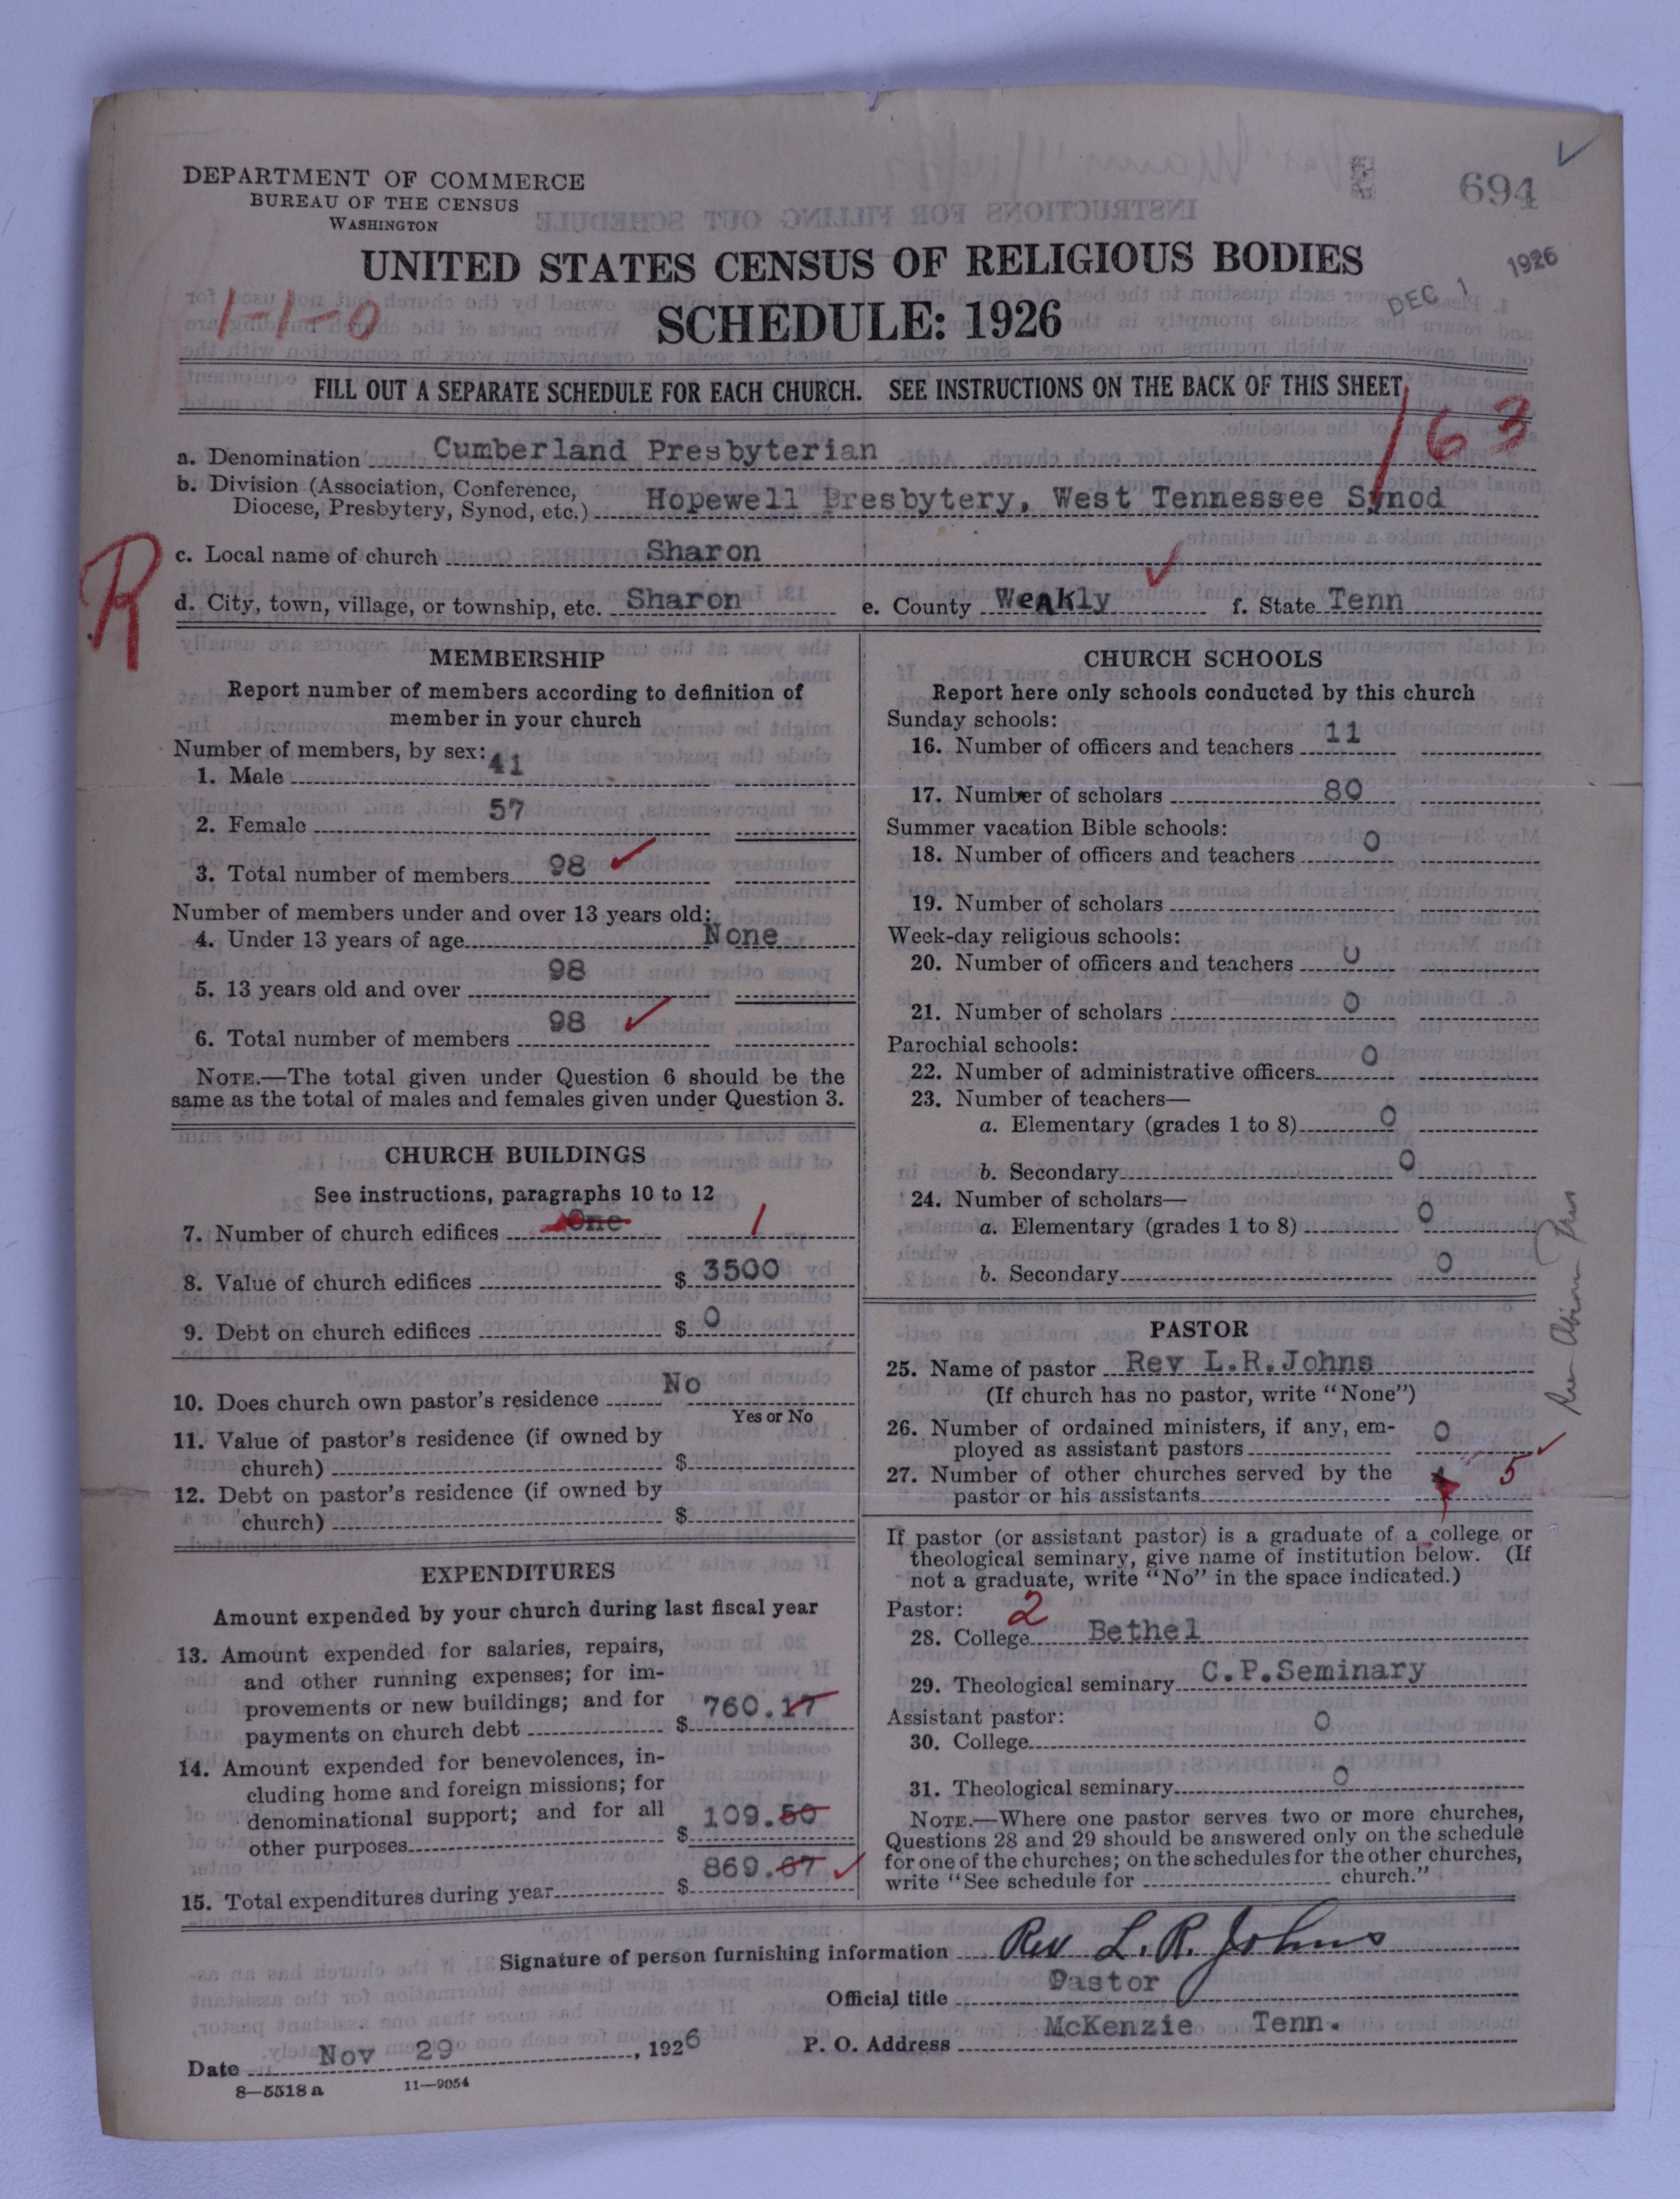 694
DEPARTMENT OF COMMERCE
BUREAU OF THE CENSUS
WASHINGTON
UNITED STATES CENSUS OF RELIGIOUS BODIES
DEC 1 1926
1-1-0
SCHEDULE: 1926
FILL OUT A SEPARATE SCHEDULE FOR EACH CHURCH. SEE INSTRUCTIONS ON THE BACK OF THIS SHEET
163
a. Denomination Cumberland Presbyterian
b. Division (Association, Conference,
Diocese, Presbytery, Synod, etc.) Hopewell Presbytery, West Tennessee Synod
R
c. Local name of church Sharon
d. City, town, village, or township, etc. Sharon e. County Weakly f. State Tenn
MEMBERSHIP
Report number of members according to definition of
member in your church
Number of members, by sex:
1. Male 41
2. Female 57
3. Total number of members 98
Number of members under and over 13 years old:
4. Under 13 years of age None
5. 13 years old and over 98
6. Total number of members 98
NOTE.—The total given under Question 6 should be the
same as the total of males and females given under Question 3.
CHURCH BUILDINGS
See instructions, paragraphs 10 to 12
7. Number of church edifices One 1
8. Value of church edifices $ 3500
9. Debt on church edifices $ 0
10. Does church own pastor's residence No
Yes or No
11. Value of pastor's residence (if owned by
church) $
12. Debt on pastor's residence (if owned by
church) $
EXPENDITURES
Amount expended by your church during last fiscal year
13. Amount expended for salaries, repairs,
and other running expenses; for im-
provements or new buildings; and for
payments on church debt $ 760.17
14. Amount expended for benevolences, in-
cluding home and foreign missions; for
denominational support; and for all
other purposes $ 109.50
15. Total expenditures during year $ 869.67
CHURCH SCHOOLS
Report here only schools conducted by this church
Sunday schools:
16. Number of officers and teachers 11
17. Number of scholars 80
Summer vacation Bible schools:
18. Number of officers and teachers 0
19. Number of scholars
Week-day religious schools:
20. Number of officers and teachers 0
21. Number of scholars 0
Parochial schools:
22. Number of administrative officers 0
23. Number of teachers—
a. Elementary (grades 1 to 8) 0
b. Secondary 0
24. Number of scholars—
a. Elementary (grades 1 to 8) 0
b. Secondary 0
PASTOR
25. Name of pastor Rev L.R.Johns
(If church has no pastor, write "None")
26. Number of ordained ministers, if any, em-
ployed as assistant pastors 0
27. Number of other churches served by the
pastor or his assistants 5
If pastor (or assistant pastor) is a graduate of a college or
theological seminary, give name of institution below. (If
not a graduate, write "No" in the space indicated.)
Pastor: 2
28. College Bethel
29. Theological seminary C.P.Seminary
Assistant pastor:
30. College 0
31. Theological seminary 0
NOTE.—Where one pastor serves two or more churches,
Questions 28 and 29 should be answered only on the schedule
for one of the churches; on the schedules for the other churches,
write "See schedule for church."
Signature of person furnishing information Rev L. R. Johns
Official title Pastor
Date Nov 29, 1926 P. O. Address McKenzie Tenn.
8—5518a 11—9054